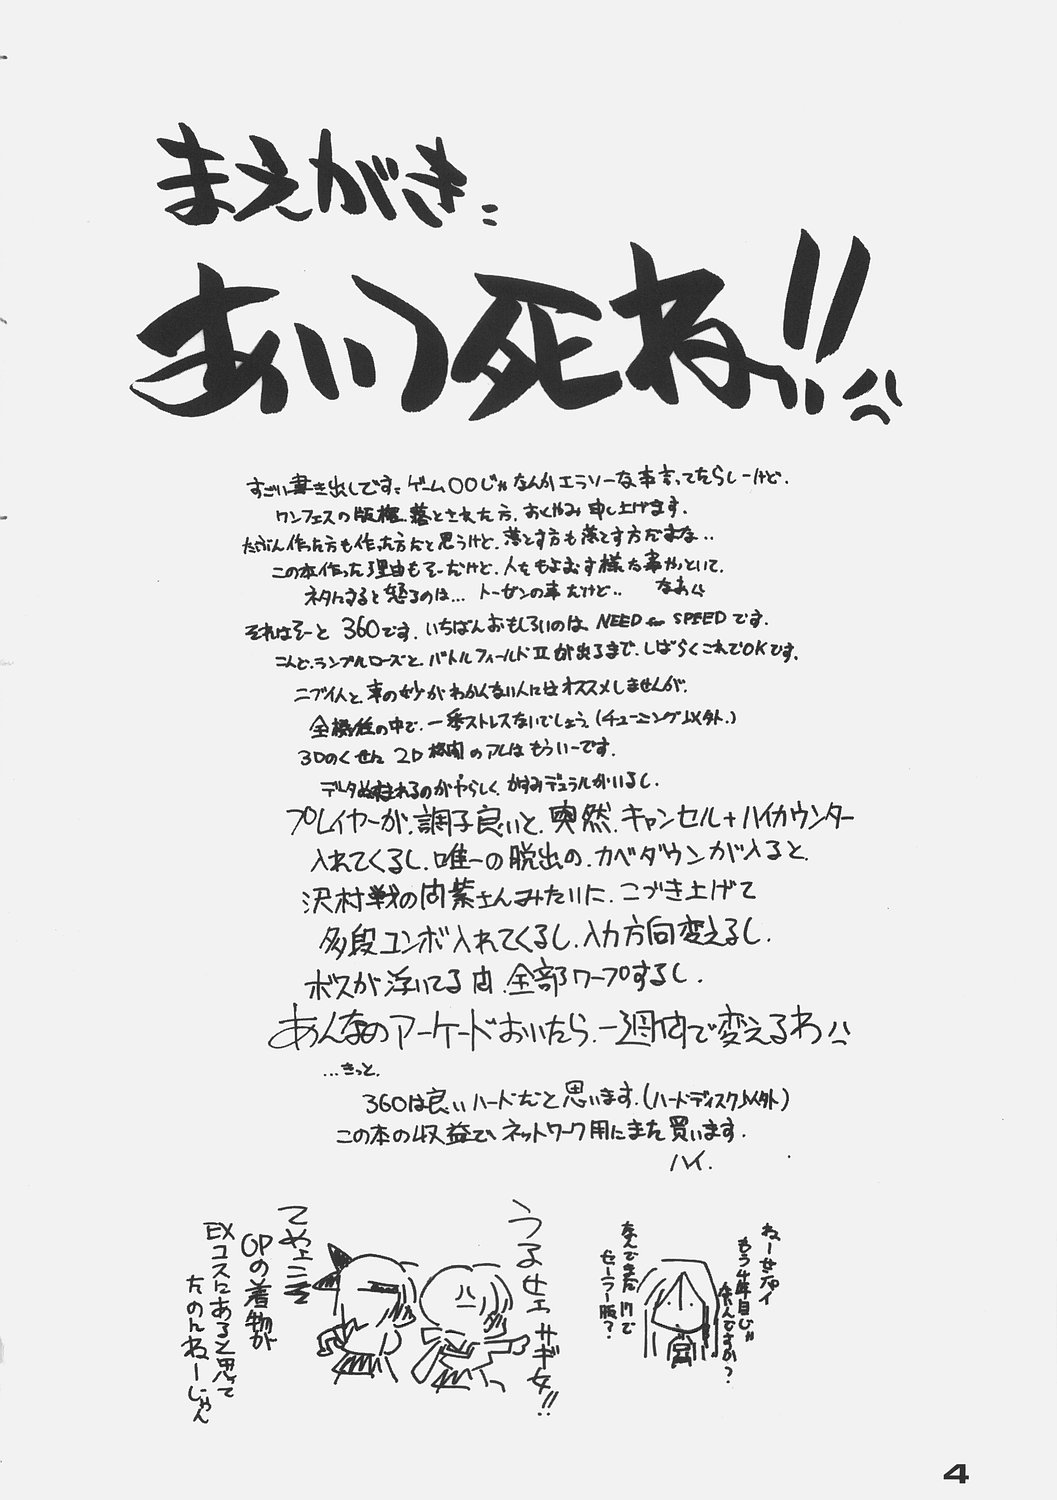 まえがき、
あいつ死ね!!
すごい書き出しです。ゲーム〇〇じゃなんかエラソーな事言ってたらしーけど、
ワンフェスの版権、落とされた方、おくやみ申し上げます。
たぶん作った方も作った方だと思うけど、落とす方も落とす方だよな‥
この本作った理由もそーだけど、人をもよおす様な事やっといて、
ネタにすると怒るのは… トーゼンの事だけど‥ なあ
それはそーと 360です。いちばんおもしろいのは、NEED for SPEEDです。
こんと、ランブルローズと、バトルフィールドⅡが出るまで、しばらくこれでOKです。
ニブイ人と、車の妙がわかんない人にはオススメしませんが、
全機種の中で、一番ストレスないでしょう。(チューニング以外。)
3Dのくせに 2D格闘のアレはもういーです。
データぬすまれるのがやらしく、かすみデュラルがいるし、
プレイヤーが、調子良いと、突然、キャンセル+ハイカウンター
入れてくるし、唯一の脱出の、カベダウンが入ると、
沢村戦の間柴さんみたいに、こづき上げて
多段コンボ入れてくるし、入力方向変えるし、
ボスが浮いてる間、全部ワープするし、
あんなのアーケードおいたら、一週間で変えるわ
…きっと、
360は良いハードだと思います。(ハードディスク以外)
この本の収益で、ネットワーク用にまた買います。
ハイ.
ねーせんせイ
もう4年目じゃ
ないですか?
なんでまだ17で
セーラー服?
うるせェ サギ女!!
てやェ
OPの着物が
EXコスにあると思って
たのんねーじゃん
4